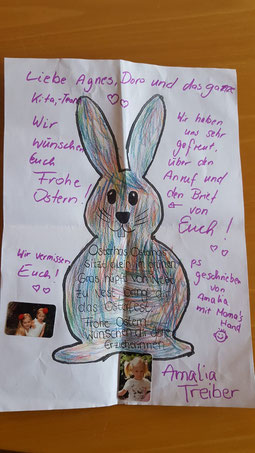 Liebe Agnes, Doro und das ganze
Kita-Team
Wir
wünschen
Euch
Frohe
Ostern!
Wir haben
uns sehr
gefreut,
über den
Anruf und
den Brief
von
Euch!
Wir vermissen
Euch!
Osterhas Osterhas
sitz klein im grünen
Gras, hüpf von Nest
zu Nest bring
das Osterfest.
Frohe Ostern
wünschen
Erzieherinnen
ps
geschrieben
von
Amalia
mit Mama's
Hand
Amalia
Treiber